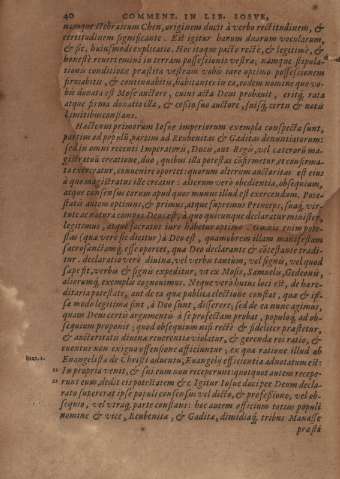 40 COMMENT. IN LIB. IOSVE,
namque Hebraicum Chen, originem ducit à verbo rectitudinem, &
certitudinem significante. Est igitur harum duarum vocularum,
& sic, huiusmodi explicatio. Hoc itaque pacto recte, & legitimè, &
honestè reuertemini in terram possessionis vestra, namque stipula-
tionis conditione præstita vestram vobis iure optimo possessionem
prouobitis, & continuabitis, habitantes in ea, eodem nomine quo vo-
bis donata est Mose auctore, cuius acta Deus probauit,
atque firma donatio illa, & eius suo auctore, suisq, certa & nota
limitibus constans.
Hactenus priorum Iosue imperiorum exempla conspecta sunt,
partim ad populi, partim ad Reubenitas & Gaditas denuntiatorum:
sed in omni recenti Imperatoris, Ducis, aut Regis, vel cæterorum ma-
gistratuum creatione, duo, quibus illa potestas confirmetur, ut confirma-
ta exerceatur, conuenire oportet: quorum alterum auctoritas est eius
à quo magistratus ille creatur: alterum verò obedientia, obsequium,
atque consensus eorum apud quos munus illud est exercendum. Pote-
statis autem optimus, & primus, atque supremus Princeps, suaq, vir-
tute ac natura compos Deus est, à quo quicunque declaratur minister,
legitimus, atque sacratus iure habetur optimo.
situs (qua verè sic dicitur) à Deo est, quamobrem illam manifestam
sacrosanctamq, esse oportet, qua Deo declarante & contestante tradi-
tur. declaratur verò diuina, vel verbis tantùm, vel signis, vel quod
sæpe fit, verbis & signis expeditur, ut ex Mosis, Samuelis, Gedeonis,
aliorumq, exemplis cognouimus. Neque verò huius loci est, de hære-
ditaria potestate, aut de ea quæ publica electione constat, quæ & ip-
sæ modo legitimæ sint, à Deo sunt, disserere; sed de ea nunc agimus,
quam Deus certis argumentis à se profectam probat, populoq, ad ob-
sequium proponit: quod obsequium nisi rectè & fideliter præstetur,
& auctoritatis diuinæ reuerentia violatur, & gerendæ rei ratio, &
euentus non exiguo offensione afficiuntur. ex qua ratione illud ab
Euangelista de Christi aduentu, Euangelij efficientia adnotatum est:
Ioan. 1.
" In propria venit, & sui eum non receperunt: quotquot autem recepe-
" runt eum, dedit eis potestatem &c. Igitur Iosue ducis per Deum decla-
rato supererat ipse populi consensus vel dicto, & professione, vel ob-
sequio, vel vtraq, parte constans: hoc autem officium totius populi
nomine & vice, Reubenitæ, & Gaditæ, dimidiaq, tribus Manasse
præsti